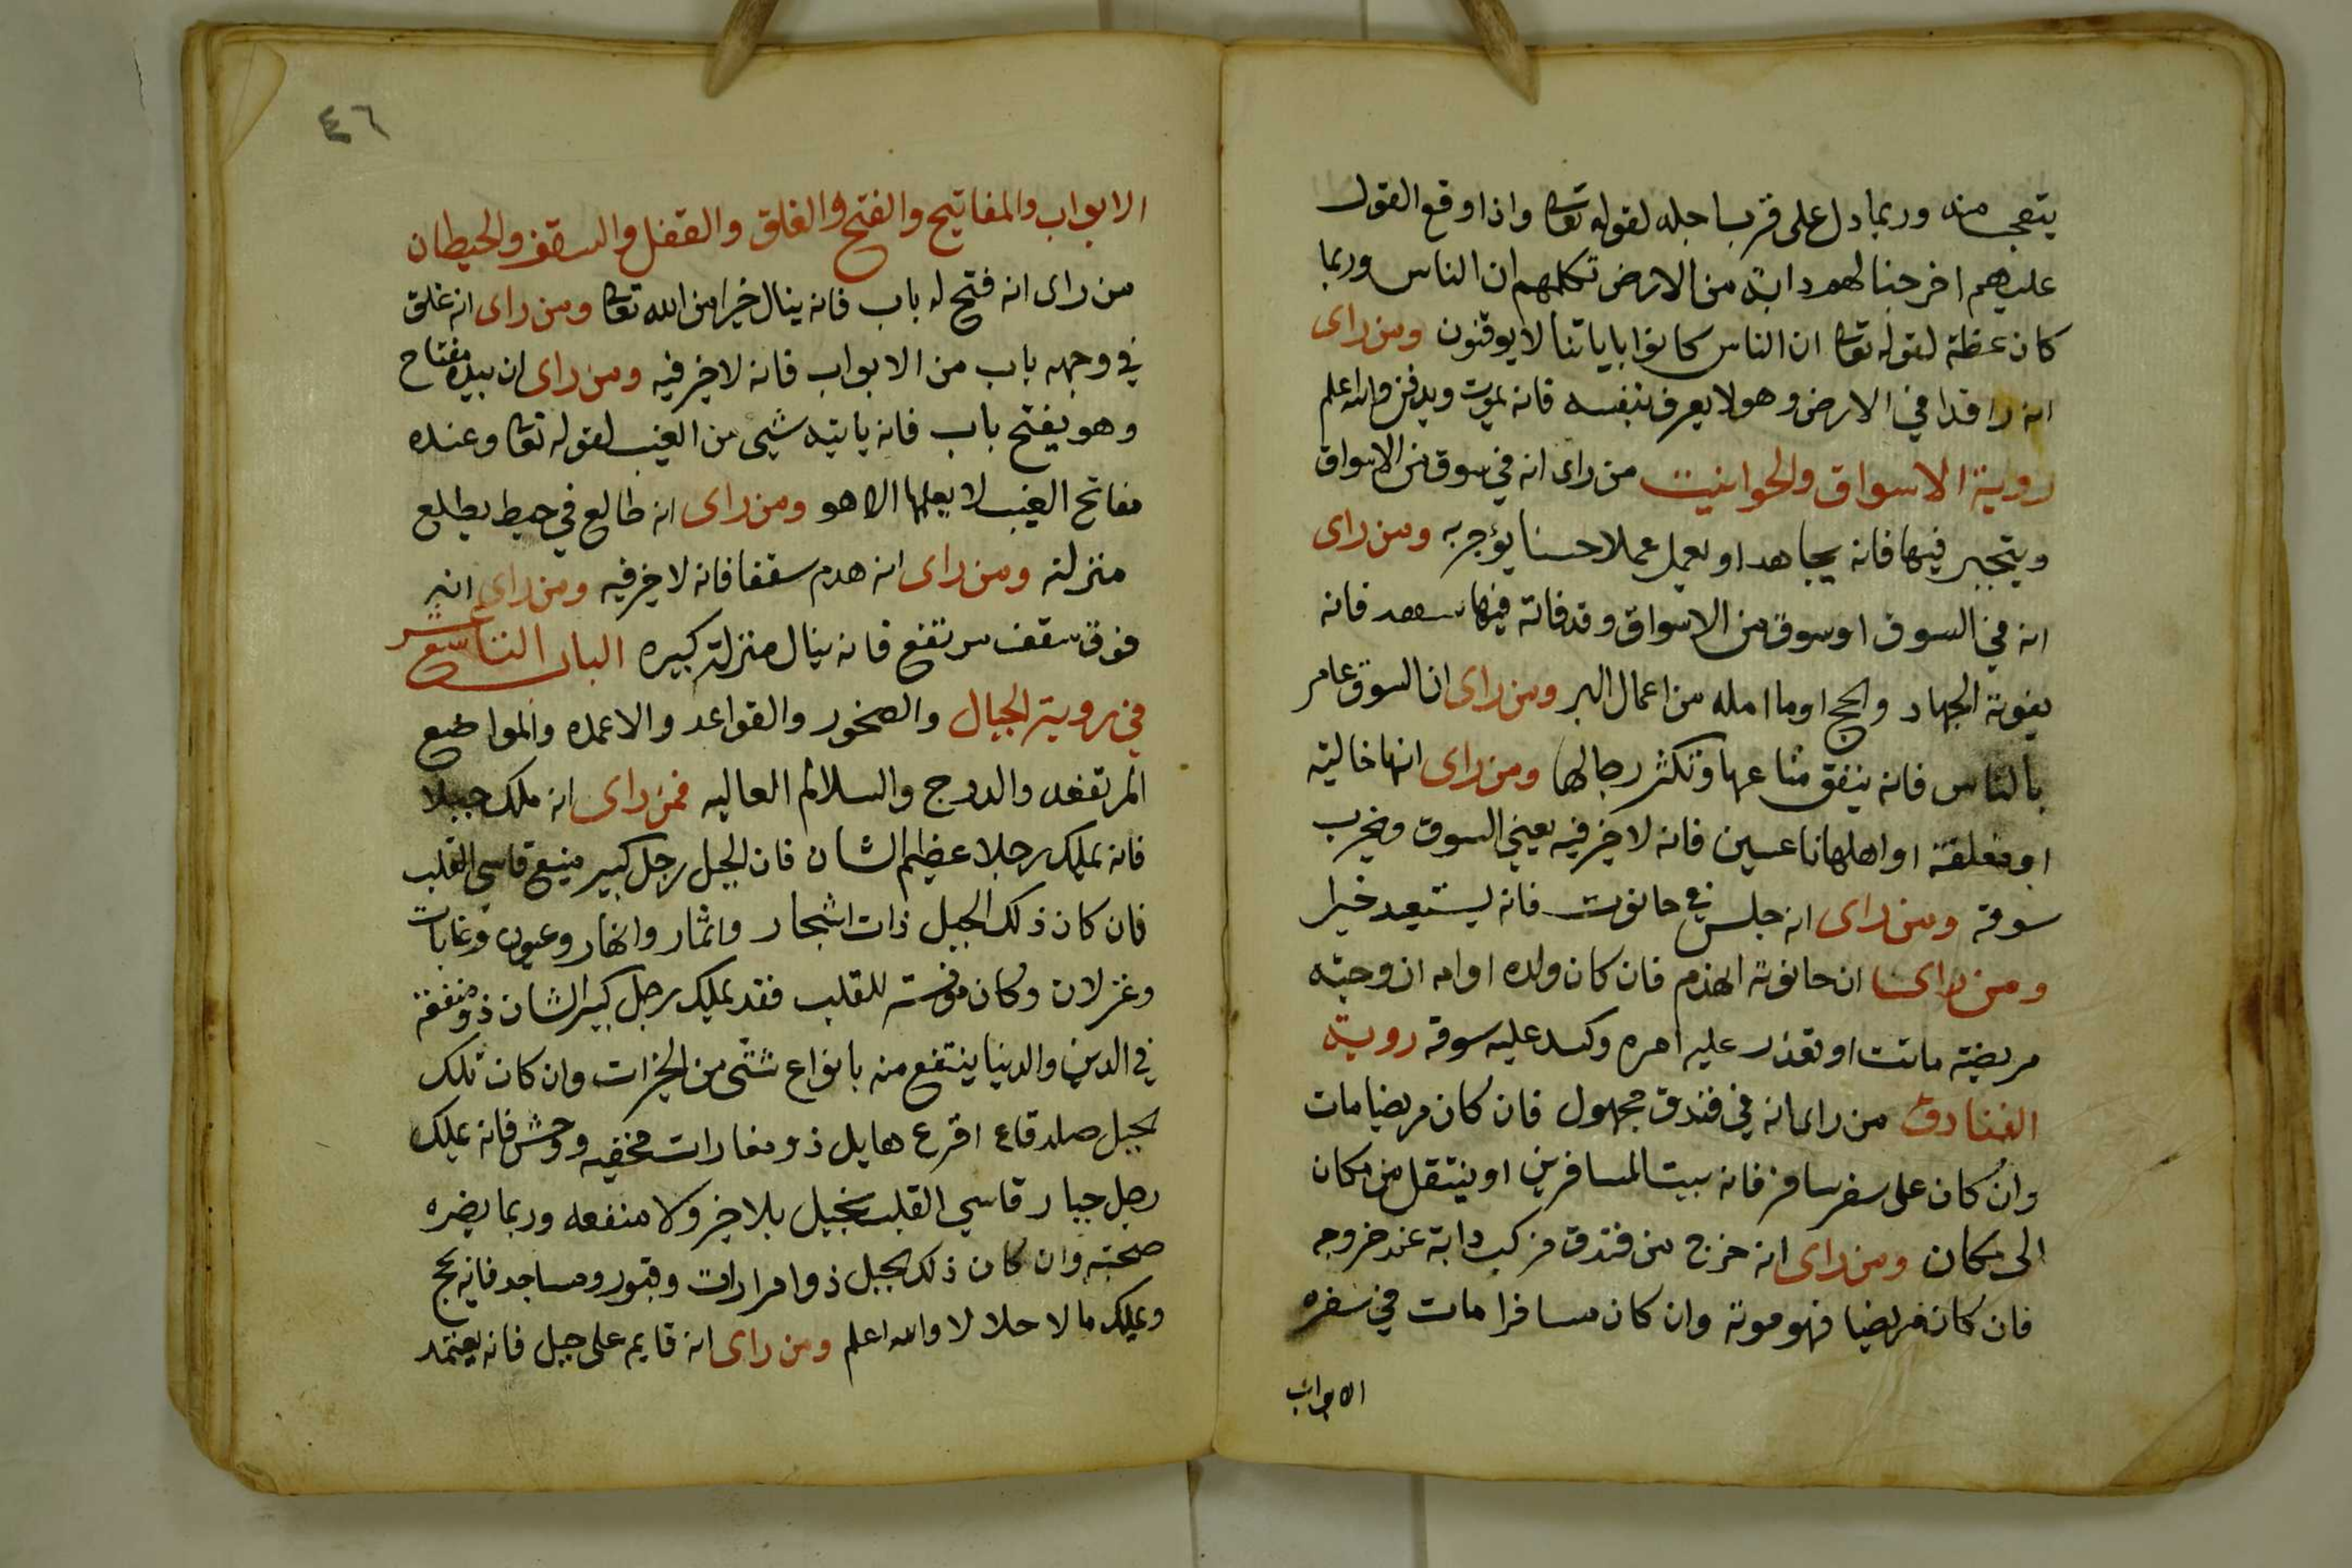 يتعجب منه وربما دل على قرب اجله لقوله تعا واذا وقع القول
عليهم اخرجنا لهم دابة من الارض تكلمهم ان الناس وربما
كان عظة لقوله تعا ان الناس كانوا باياتنا لا يوقنون ومن راى
انه راقدا في الارض وهو لا يعرف بنفسه فانه يموت ويدفن والله اعلم
روية الاسواق والحوانيت من راى انه في سوق من الاسواق
ويتجبر فيها فانه يجاهد او يعمل عملا حسنا يؤجر به ومن راى
انه في السوق او سوق من الاسواق وقد فاته فيها فانه
يفوته الجهاد والحج او ما امله من اعمال البر ومن راى ان السوق عامر
بالناس فانه ينفق متاعها وتكثر رجالها ومن راى انها خالية
او مغلقة او اهلها ناعسين فانه لا خير فيه يعيني السوق ويخرب
سوقه ومن راى انه جلس في حانوت فانه يستعيد خيرا
ومن راى ان حانوته انهدم فان كان ولده او امه او زوجته
مريضة ماتت او تعذر عليه امره وكسد عليه سوقه روية
الفنادق من راى انه في فندق مجهول فان كان مريضا مات
وان كان على سفر سافر فانه بيت المسافرين او ينتقل من مكان
الى مكان ومن راى انه خرج من فندق فركب دابة عند خروجه
فان كان مريضا فهو موته وان كان مسافرا مات في سفره
الابواب
٤٦
الابواب والمفاتيح والفتح والغلق والقفل والسقف والحيطان
من راى انه فتح له باب فانه ينال خيرا من الله تعا ومن راى انه غلق
في وجهه باب من الابواب فانه لا خير فيه ومن راى ان بيده مفتاح
وهو يفتح باب فانه ياتيه شيى من الغيب لقوله تعا وعنده
مفاتح الغيب لا يعلمها الا هو ومن راى انه طالع في حيط يطلع
منزلته ومن راى انه هدم سقفا فانه لا خير فيه ومن راى انه
فوق سقف مرتفع فانه ينال منزلة كبيره الباب التاسع عشر
في روية الجبال والصخور والقواعد والاعمده والمواضع
المرتفعه والدرج والسلالم العاليه فمن راى انه ملك جبلا
فانه يملك رجلا عظيم الشان فان الجبل رجل كبير منيع قاسي القلب
فان كان ذلك الجبل ذات اشجار واثمار وانهار وعيون وغابات
وغزلان وكان مونسة للقلب فقد يملك رجل كبير الشان ذو منفعة
في الدين والدنيا ينتفع منه بانواع شتى من الخيرات وان كان تلك
الجبل صلد قاع اقرع هايل ذو مغارات مخفيه ووحش فانه يملك
رجل جبار قاسي القلب بخيل بلا خير ولا منفعه وربما يضره
صحبته وان كان ذلك الجبل ذوا مزارات وقبور ومساجد فانه يحج
ويملك مالا حلالا والله اعلم ومن راى انه قايم على جبل فانه يعتمد